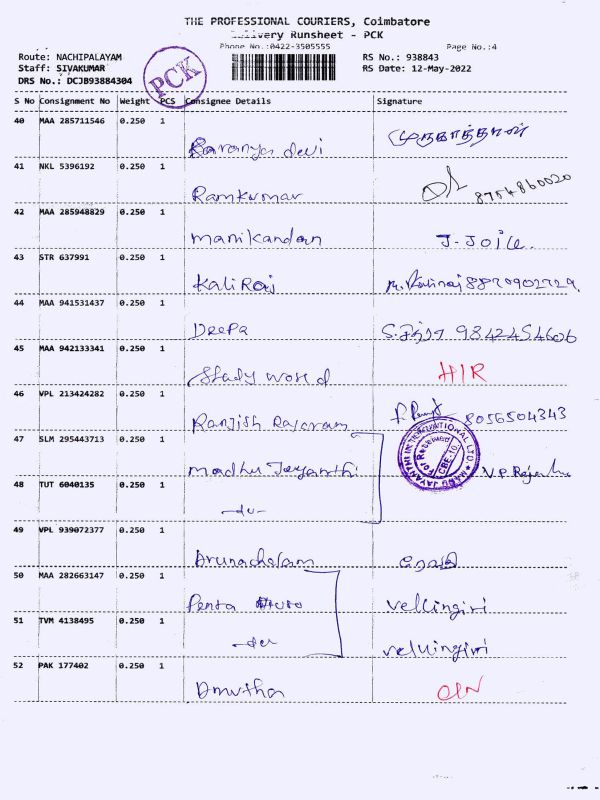 THE PROFESSIONAL COURIERS, Coimbatore
Delivery Runsheet - PCK
Phone No.:0422-3505555
Page No.:4
Route: NACHIPALAYAM
RS No.: 938843
Staff: SIVAKUMAR
RS Date: 12-May-2022
DRS No.: DCJB93884304
PCK
S No Consignment No Weight PCS Consignee Details Signature
40 MAA 285711546 0.250 1
Saranya devi
41 NKL 5396192 0.250 1
Ramkumar 8754860020
42 MAA 285948829 0.250 1
manikandan J. Joice.
43 STR 637991 0.250 1
KaliRaj 8870902729
44 MAA 941531437 0.250 1
Deepa 9842454606
45 MAA 942133341 0.250 1
Stady world HIR
46 VPL 213424282 0.250 1
Ranjish Rajaram 8056504343
47 SLM 295443713 0.250 1
madhu Jayanthi
MADHU JAYANTHI INTERNATIONAL LTD.
48 TUT 6040135 0.250 1
-do-
49 VPL 939072377 0.250 1
Arunachalam
50 MAA 282663147 0.250 1
Penta vellingiri
51 TVM 4138495 0.250 1
-do- velluingiri
52 PAK 177402 0.250 1
Amutha